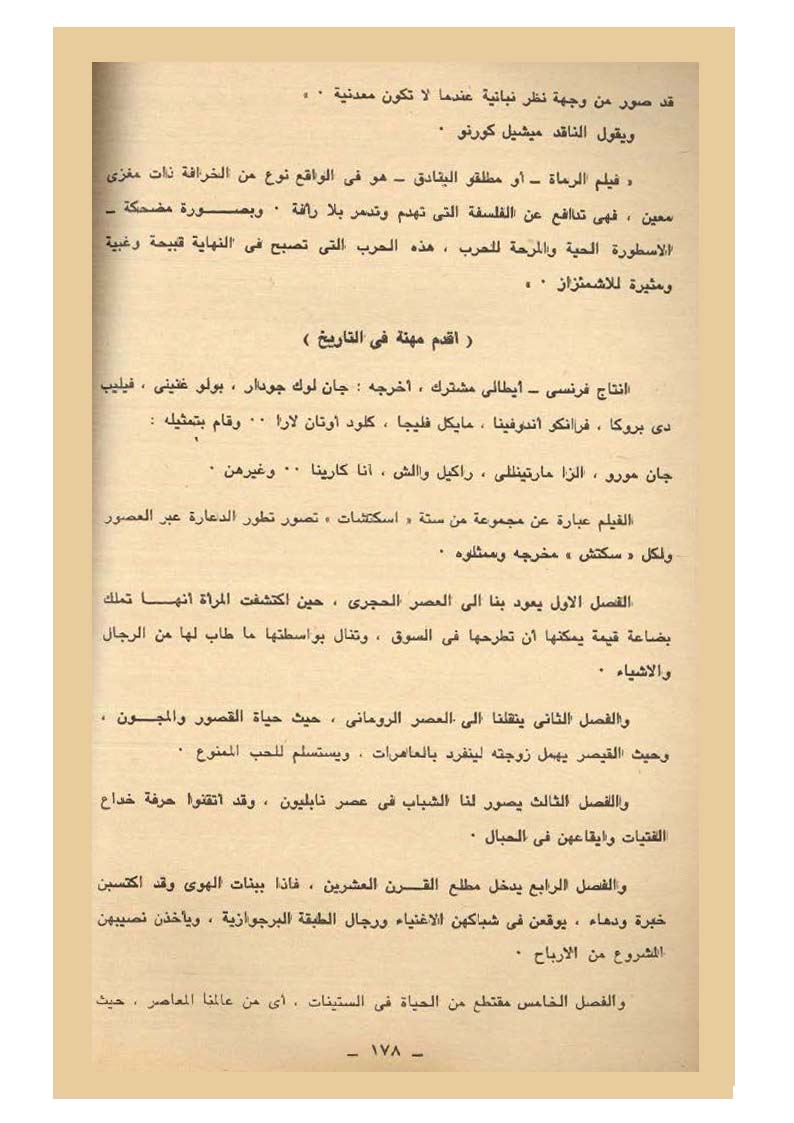 قد صور من وجهة نظر نباتية عندما لا تكون معدنية ٠ »
ويقول الناقد ميشيل كورنو ٠
« فيلم الرماة ـ أو مطلقو البنادق ـ هو فى الواقع نوع من الخرافة ذات مغزى
معين ، فهى تدافع عن الفلسفة التى تهدم وتدمر بلا رأفة ٠ وبصـــورة مضحكة ـ
الاسطورة الحية والمرحة للحرب ، هذه الحرب التى تصبح فى النهاية قبيحة وغبية
ومثيرة للاشمئزاز ٠ »
( أقدم مهنة فى التاريخ )
انتاج فرنسى ـ أيطالى مشترك ، أخرجه : جان لوك جودار ، بولو غنينى ، فيليب
دى بروكا ، فرانكو أندوفينا ، مايكل فليجا ، كلود أوتان لارا ٠٠ وقام بتمثيله :
جان مورو ، الزا مارتينللى ، راكيل والش ، أنا كارينا ٠٠ وغيرهن ٠
الفيلم عبارة عن مجموعة من ستة « اسكتشات » تصور تطور الدعارة عبر العصور
ولكل « سكتش » مخرجه وممثلوه ٠
الفصل الاول يعود بنا الى العصر الحجرى ، حين اكتشفت المرأة أنهـــا تملك
بضاعة قيمة يمكنها أن تطرحها فى السوق ، وتنال بواسطتها ما طاب لها من الرجال
والاشياء ٠
والفصل الثانى ينقلنا الى العصر الرومانى ، حيث حياة القصور والمجــون ،
وحيث القيصر يهمل زوجته لينفرد بالعاهرات ، ويستسلم للحب الممنوع ٠
والفصل الثالث يصور لنا الشباب فى عصر نابليون ، وقد أتقنوا حرفة خداع
الفتيات وايقاعهن فى الحبال ٠
والفصل الرابع يدخل مطلع القــرن العشرين ، فاذا ببنات الهوى وقد اكتسبن
خبرة ودهاء ، يوقعن فى شباكهن الاغنياء ورجال الطبقة البرجوازية ، ويأخذن نصيبهن
المشروع من الارباح ٠
والفصل الخامس مقتطع من الحياة فى الستينات ، أى من عالمنا المعاصر ، حيث
ـ ١٧٨ ـ